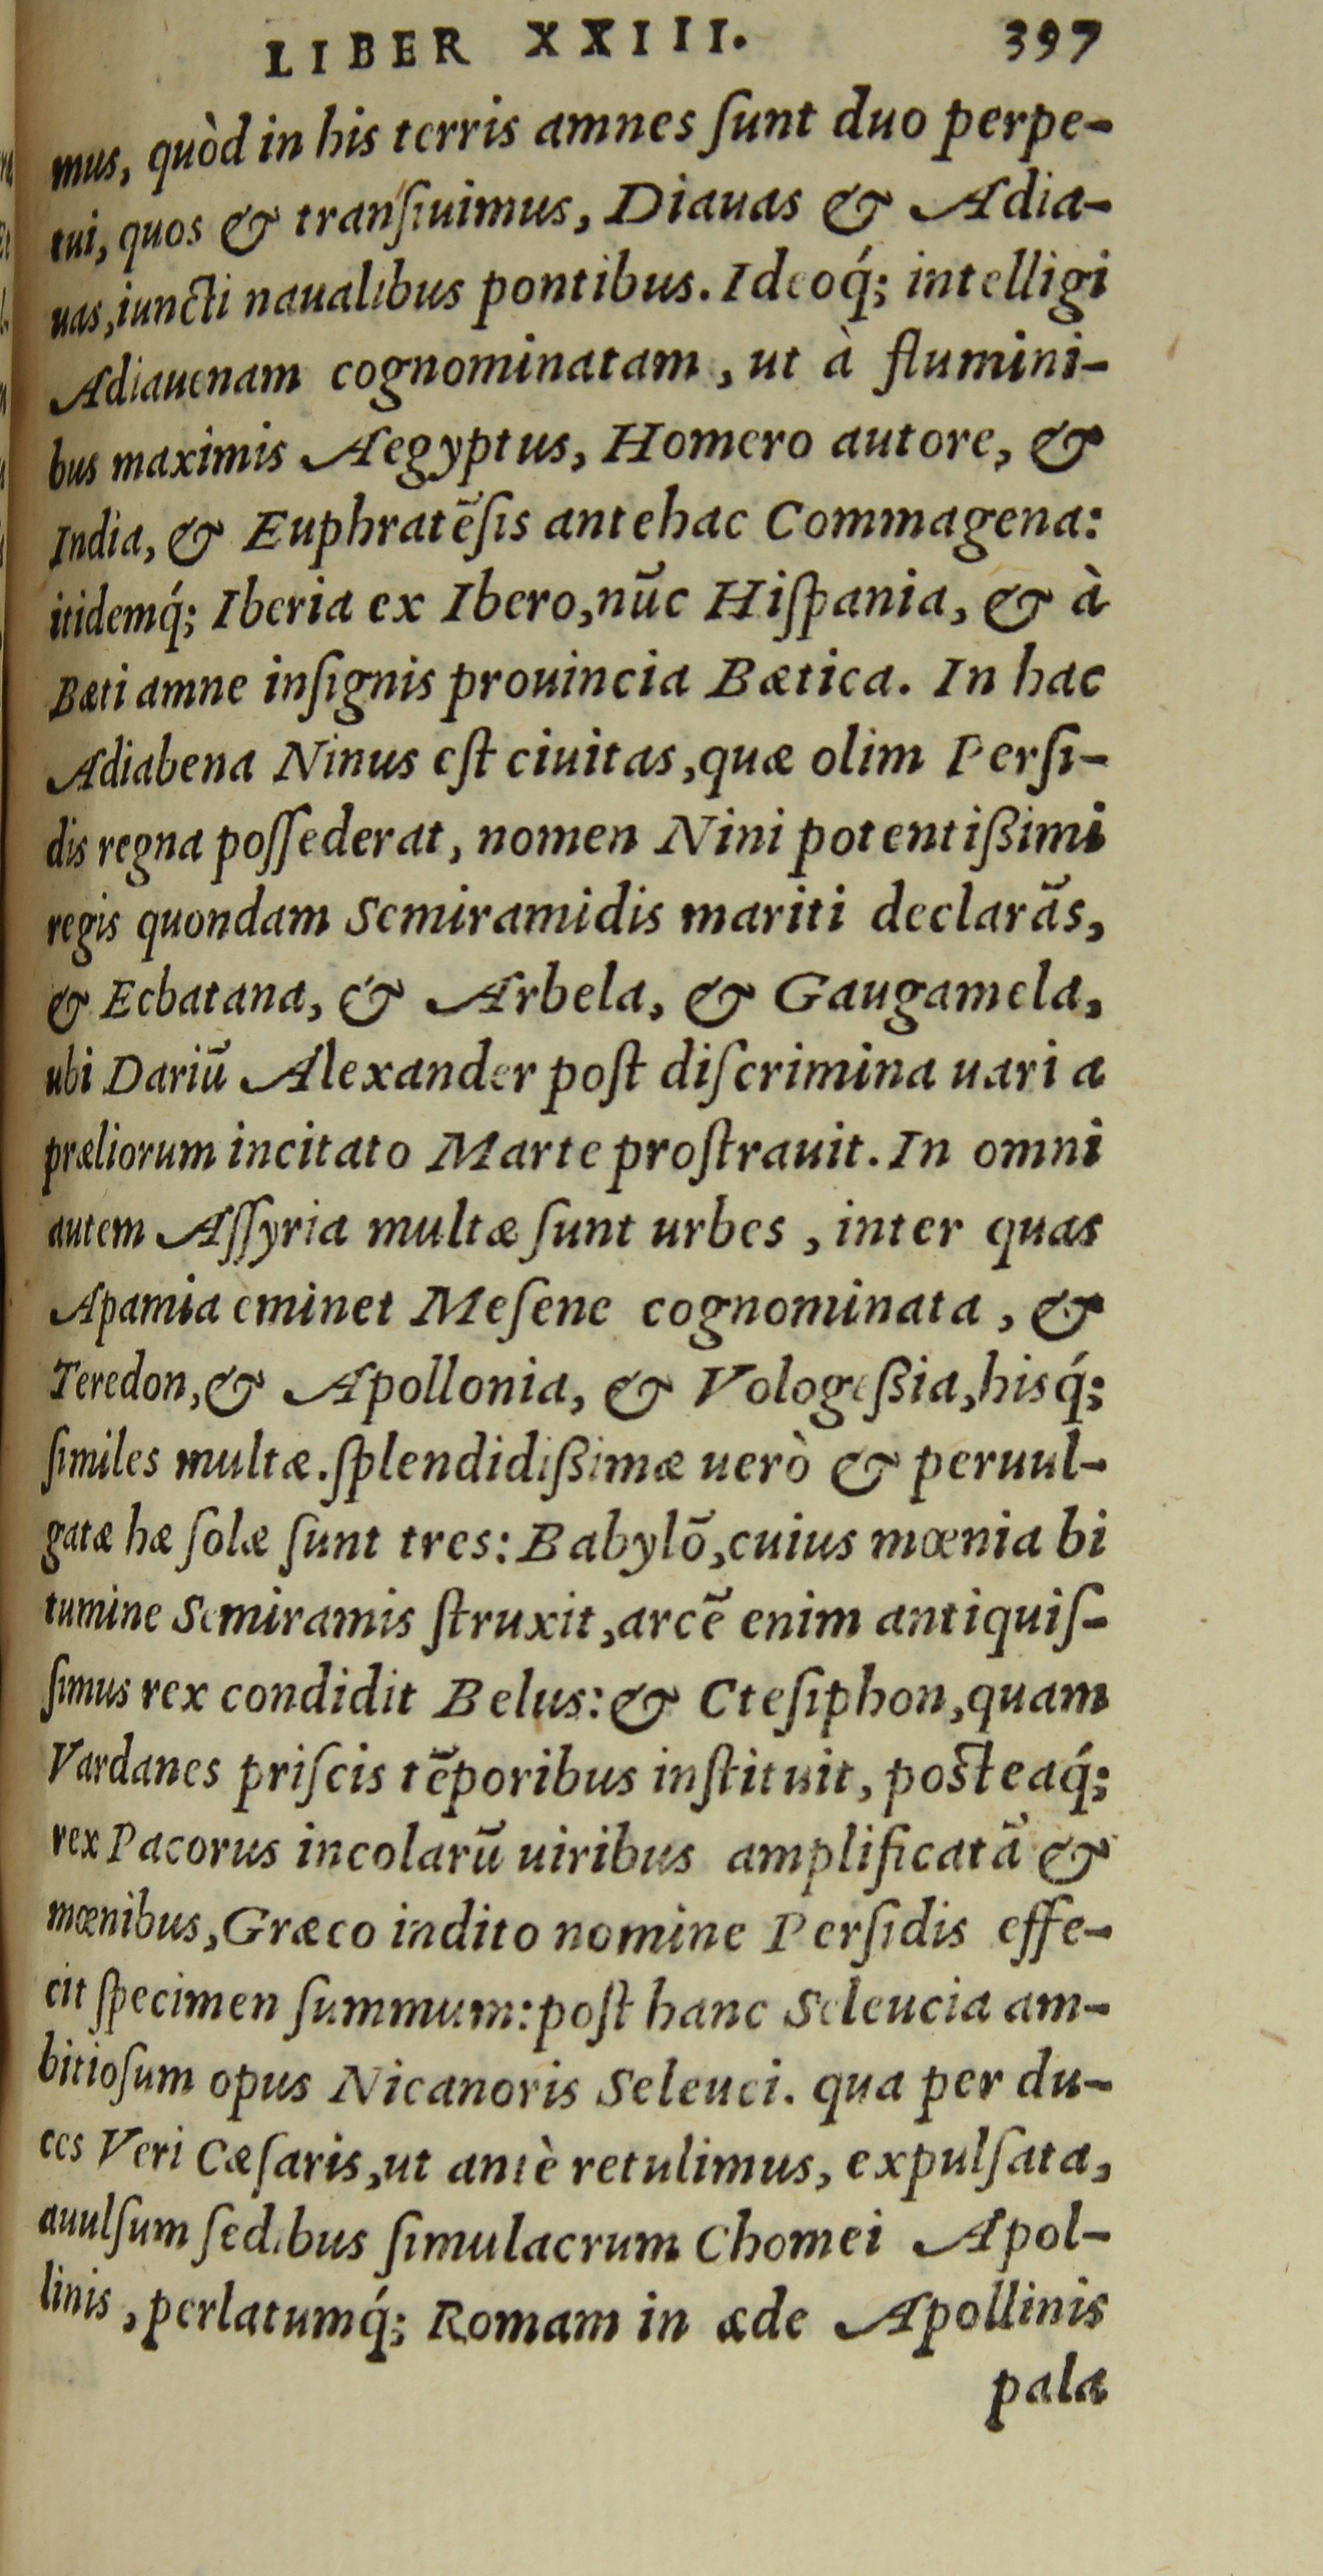 LIBER XXIII. 397
mus, quòd in his terris amnes ſunt duo perpe-
tui, quos & tranſiuimus, Diauas & Adia-
uas, iuncti naualibus pontibus. Ideoq́; intelligi
Adiauenam cognominatam, ut à flumini-
bus maximis Aegyptus, Homero autore, &
India, & Euphratēſis antehac Commagena:
itidemq́; Iberia ex Ibero, nūc Hiſpania, & à
Bæti amne inſignis prouincia Bætica. In hac
Adiabena Ninus eſt ciuitas, quæ olim Perſi-
dis regna poſſederat, nomen Nini potentißimi
regis quondam Semiramidis mariti declarãs,
& Ecbatana, & Arbela, & Gaugamela,
ubi Dariū Alexander poſt diſcrimina uaria
præliorum incitato Marte proſtrauit. In omni
autem Aſſyria multæ ſunt urbes, inter quas
Apamia eminet Meſene cognominata, &
Teredon, & Apollonia, & Vologeßia, hisq́;
ſimiles multæ. ſplendidißimæ uerò & peruul-
gatæ hæ ſolæ ſunt tres: Babylō, cuius mœnia bi
tumine Semiramis ſtruxit, arcē enim antiquiſ-
ſimus rex condidit Belus: & Cteſiphon, quam
Vardanes priſcis tēporibus inſtituit, poſteaq́;
rex Pacorus incolarū uiribus amplificatã &
mœnibus, Græco indito nomine Perſidis effe-
cit ſpecimen ſummum: poſt hanc Seleucia am-
bitioſum opus Nicanoris Seleuci. qua per du-
ces Veri Cæſaris, ut antè retulimus, expulſata,
auulſum ſedibus ſimulacrum Chomei Apol-
linis, perlatumq́; Romam in æde Apollinis
pala